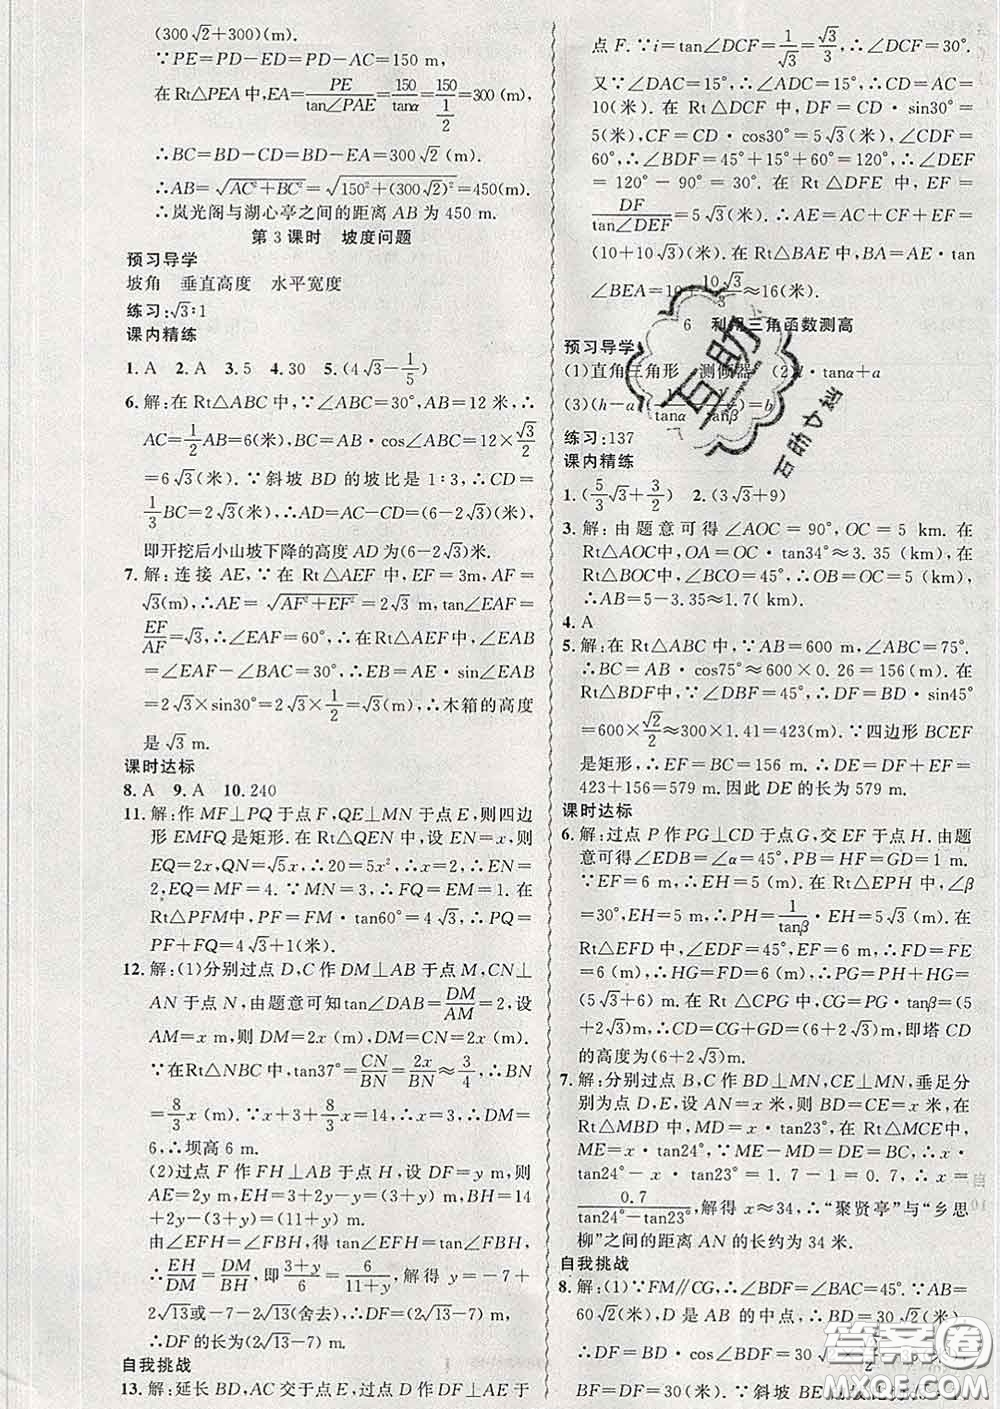 (300√2+300)(m).
∵PE=PD−ED=PD−AC=150 m,
在 Rt△PEA 中,EA=PE/tan∠PAE=150/tanα=150/(1/2)=300(m)
∴BC=BD−CD=BD−EA=300√2 (m).
∴AB=√(AC²+BC²)=√(150²+(300√2)²)=450(m).
∴岚光阁与湖心亭之间的距离 AB 为 450 m.
第 3 课时 坡度问题
预习导学
坡角 垂直高度 水平宽度
练习:√3∶1
课内精练
1. A 2. A 3. 5 4. 30 5. (4√3−1/5)
6. 解:在 Rt△ABC 中,∵AB=12 米,∴
AC=1/2AB=6(米),BC=AB·cos∠ABC=12×√3/2
=6√3(米).∵斜坡 BD 的坡比是 1∶3,∴CD=
1/3BC=2√3(米),∴AD=AC−CD=(6−2√3)(米),
即开挖后小山坡下降的高度 AD 为(6−2√3)米.
7. 解:连接 AE,∵在 Rt△AEF 中,EF=3m,AF=
√3(m),∴AE=√(AF²+EF²)=2√3(m),tan∠EAF=
EF/AF=√3,∴∠EAF=60°,∴在 Rt△AEF 中,∠EAB
=∠EAF−∠BAC=30°,∴EB=AE·sin∠EAB
=2√3×sin30°=2√3×1/2=√3(m),∴木箱的高度
是 √3 m.
课时达标
8. A 9. A 10. 240
11. 解:作 MF⊥PQ 于点 F,QE⊥MN 于点 E,则四边
形 EMFQ 是矩形.在 Rt△QEN 中,设 EN=x,则
EQ=2x,QN=√5x,∴20=5x²,∴x=2,∴EN=
2,EQ=MF=4. ∵MN=3,∴FQ=EM=1. 在
Rt△PFM中,PF=FM·tan60°=4√3,∴PQ=
PF+FQ=4√3+1(米).
12. 解:(1)分别过点 D,C 作 DM⊥AB 于点 M,CN⊥
AN 于点 N,由题意可知tan∠DAB=DM/AM=2,设
AM=x(m),则 DM=2x (m),DM=CN=2x (m).
∵在Rt△NBC 中,tan37°=CN/BN=2x/BN≈3/4,∴BN=
8/3x (m). ∵x+3+8/3x=14,∴x=3,∴DM=
6,∴坝高 6 m.
(2)过点 F 作 FH⊥AB 于点 H,设 DF=y m,则
AE=2y(m),EH=3+2y−y=(3+y)(m),BH=14
+2y−(3+y)=(11+y)(m).
由∠EFH=∠FBH,得 Rt△EFH∽Rt△FBH,
∴EH/DM=DM/BH,即(3+y)/6=6/(11+y),解得 y=−7+
2√13或−7−2√13(舍去),∴DF=(2√13−7) (m),
∴DF 的长为(2√13−7) m.
自我挑战
13. 解:延长 BD,AC 交于点 E,过点 D 作 DF⊥AE 于
点 F. ∵i=tan∠DCF=1/√3=√3/3,∴∠DCF=30°.
又∵∠DAC=15°,∴∠ADC=15°,∴CD=AC=
10(米). 在 Rt△DCF 中,DF=CD·sin30°=
5(米),CF=CD·cos30°=5√3(米),∠CDF=
60°,∴∠BDF=45°+15°+60°=120°,∴∠DEF
=120°−90°=30°. 在 Rt△DFE 中,EF=
DF/tan∠DEF=5√3(米),∴AE=AC+CF+EF=
(10+10√3)(米). 在 Rt△BAE 中,BA=AE·tan
∠BEA=10+10√3/3≈16(米).
6 利用三角函数测高
预习导学
(1)直角三角形 测倾器 (2)l·tanα+a
(3)(h−a)(/tanα /tanβ)=b
练习:137
课内精练
1. (5/3√3+3/2) 2. (3√3+9)
3. 解:由题意可得∠AOC=90°,OC=5 km. 在
Rt△AOC中,OA=OC·tan34°≈3.35 (km). 在
Rt△BOC 中,∠BCO=45°,∴OB=OC=5 (km),
∴AB=5−3.35≈1.7( km).
4. A
5. 解:在 Rt△ABC 中,∵AB=600 m,∠ABC=75°.
∴BC=AB·cos75°≈600×0.26=156(m). 在
Rt△BDF中,∵∠DBF=45°,∴DF=BD·sin45°
=600×√2/2≈300×1.41=423(m). ∵四边形 BCEF
是矩形,∴EF=BC=156 m,∴DE=DF+EF=
423+156=579 m. 因此 DE 的长度为 579 m.
课时达标
6. 解:过点 P 作 PG⊥CD 于点G,交 EF于点 H. 由题
意可得∠EDB=∠α=45°,PB=HF=GD=1(m).
∵EF=6,∴EH=5 (m). 在 Rt△EPH 中,∠β
=30°,EH=5 m,∴PH=1/tanβ=5√3 (m). 在
Rt△EFD 中,∠EDF=45°,EF=6 m,∴FD=FE
=6 (m),∴HG=FD=6(m),∴PG=PH+HG=
(5√3+6) m. 在 Rt △CPG 中,CG=PG·tanβ=(5
+2√3)m,∴CD=CG+GD=(6+2√3)(m),即塔 CD
的高度为(6+2√3)m.
7. 解:分别过点 B,C 作 BD⊥MN,CE⊥MN,垂足分
别为点 D,E,设 AN=x 米,则 BD=CE=x 米,在
Rt△MBD 中,MD=x·tan23°,在 Rt△MCE中,
ME=x·tan24°,∵ME−MD=DE=BC,∴x·
tan24°−x·tan23°=1.7−1=0.7,∴x=
0.7/(tan24°−tan23°),解得 x≈34,∴“聚贤亭”与“乡思
柳”之间的距离 AN 的长约为 34 米.
自我挑战
8. 解:(1)∵FM∥CG,∴∠BDF=∠BAC=45°. ∵AB=
60√2(米),D 是 AB 的中点,∴BD=30√2(米),
BF=DF=30(米). ∵斜坡 BE
互助
答案圈